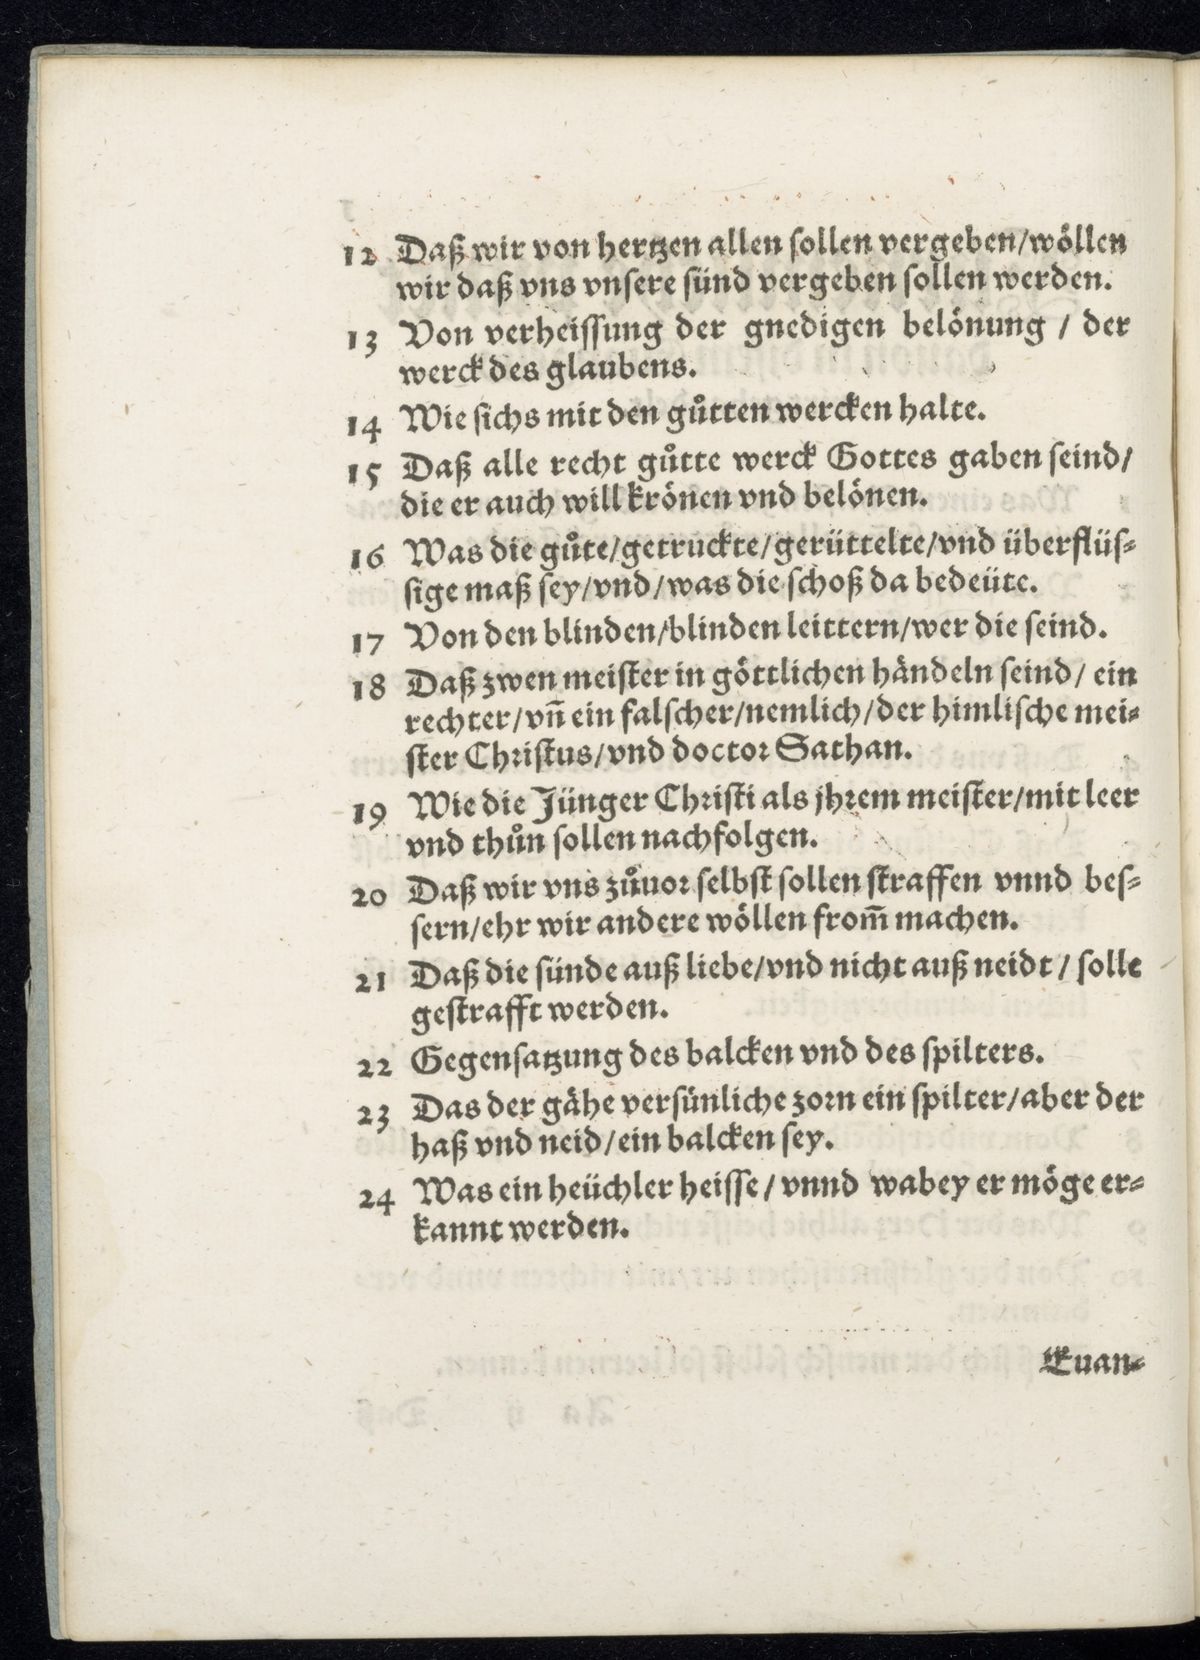 12 Daß wir von hertzen allen sollen vergeben/wöllen
wir daß vns vnsere sünd vergeben sollen werden.
13 Von verheissung der gnedigen belönung / der
werck des glaubens.
14 Wie sichs mit den gůtten wercken halte.
15 Daß alle recht gůtte werck Gottes gaben seind/
die er auch will krönen vnd belönen.
16 Was die gůte/getruckte/gerüttelte/vnd überflüs-
sige maß sey/vnd/was die schoß da bedeüte.
17 Von den blinden/blinden leittern/wer die seind.
18 Daß zwen meister in göttlichen händeln seind/ ein
rechter/vñ ein falscher/nemlich/der himlische mei-
ster Christus/vnd doctor Sathan.
19 Wie die Jünger Christi als jhrem meister/mit leer
vnd thůn sollen nachfolgen.
20 Daß wir vns zůuor selbst sollen straffen vnnd bes-
sern/ehr wir andere wöllen from̃ machen.
21 Daß die sünde auß liebe/vnd nicht auß neidt / solle
gestrafft werden.
22 Gegensatzung des balcken vnd des spilters.
23 Das der gähe versünliche zorn ein spilter/aber der
haß vnd neid/ein balcken sey.
24 Was ein heüchler heisse/ vnnd wabey er möge er-
kannt werden.
Euan-